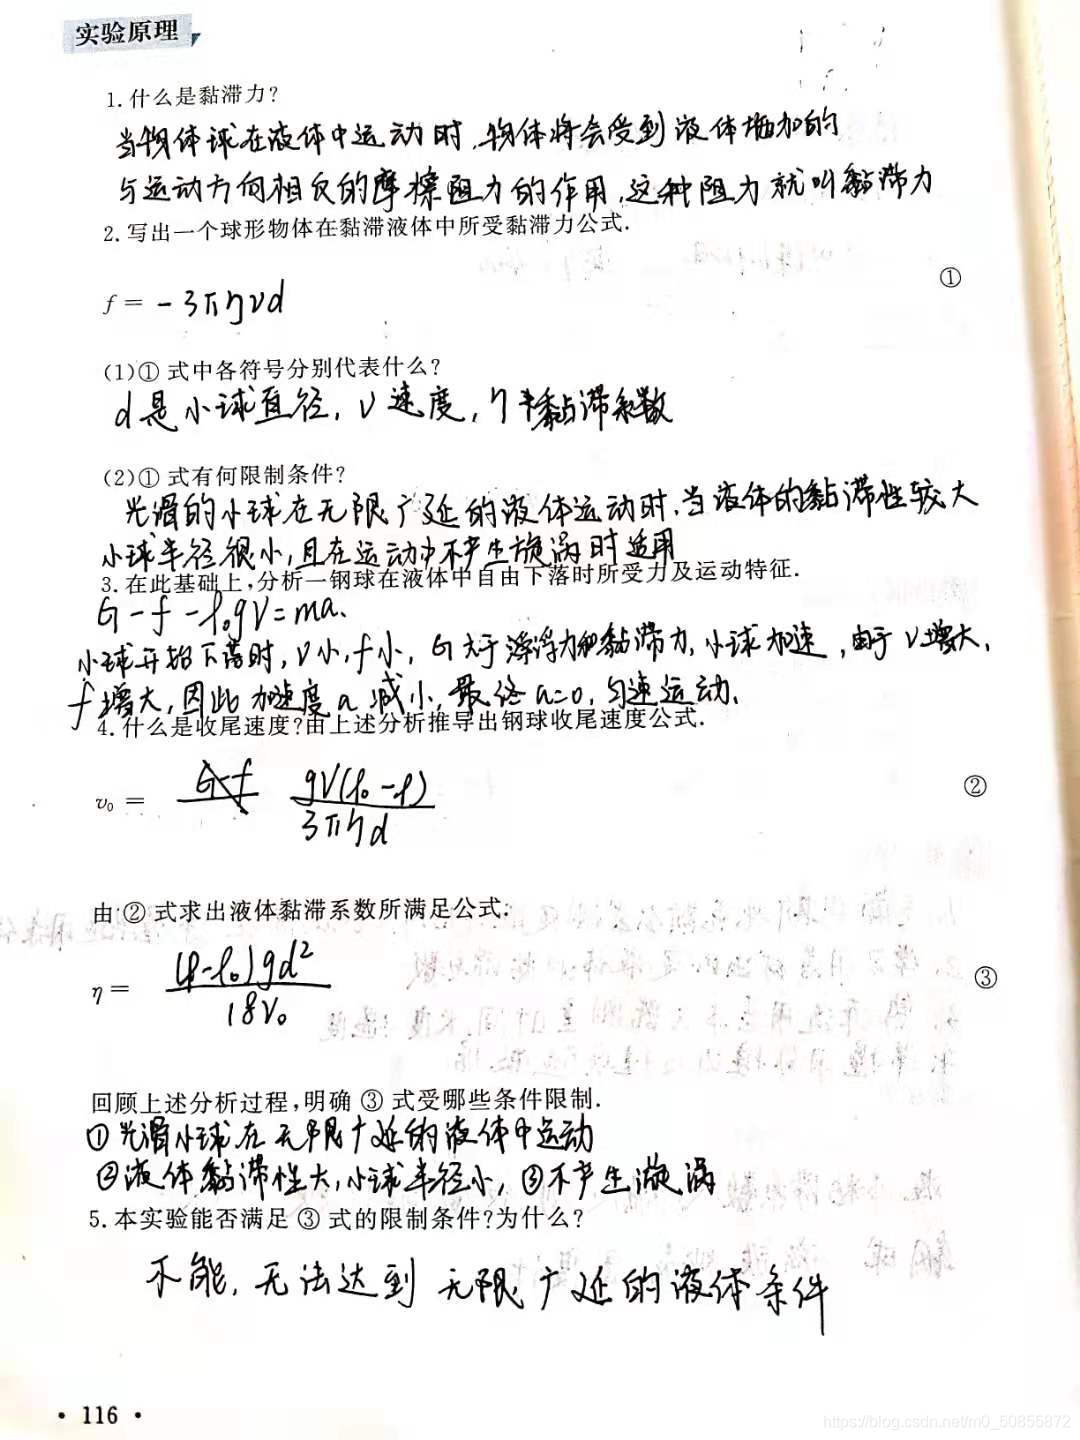 实验原理
1.什么是黏滞力?
当物体球在液体中运动时,物体将会受到液体施加的
与运动方向相反的摩擦阻力的作用,这种阻力就叫黏滞力
2.写出一个球形物体在黏滞液体中所受黏滞力公式.
f = -3πηvd ①
(1)① 式中各符号分别代表什么?
d是小球直径, v 速度, η 黏滞系数
(2)① 式有何限制条件?
光滑的小球在无限广延的液体运动时,当液体的黏滞性较大
小球半径很小,且在运动中不产生旋涡时适用
3.在此基础上,分析一钢球在液体中自由下落时所受力及运动特征.
G-f-ρ₀gV=ma.
小球开始下落时, v小, f小, G大于浮力和黏滞力,小球加速,由于v增大,
f增大,因此加速度a减小,最终a=0,匀速运动.
4.什么是收尾速度?由上述分析推导出钢球收尾速度公式.
v₀ = gV(ρ₀-ρ) / 3πηd ②
由 ② 式求出液体黏滞系数所满足公式:
η = (ρ-ρ₀)gd² / 18v₀ ③
回顾上述分析过程,明确 ③ 式受哪些条件限制.
①光滑小球在无限广延的液体中运动
②液体黏滞性大,小球半径小, ③不产生漩涡
5.本实验能否满足 ③ 式的限制条件?为什么?
不能,无法达到无限广延的液体条件
· 116 ·
https://blog.csdn.net/m0_50855872